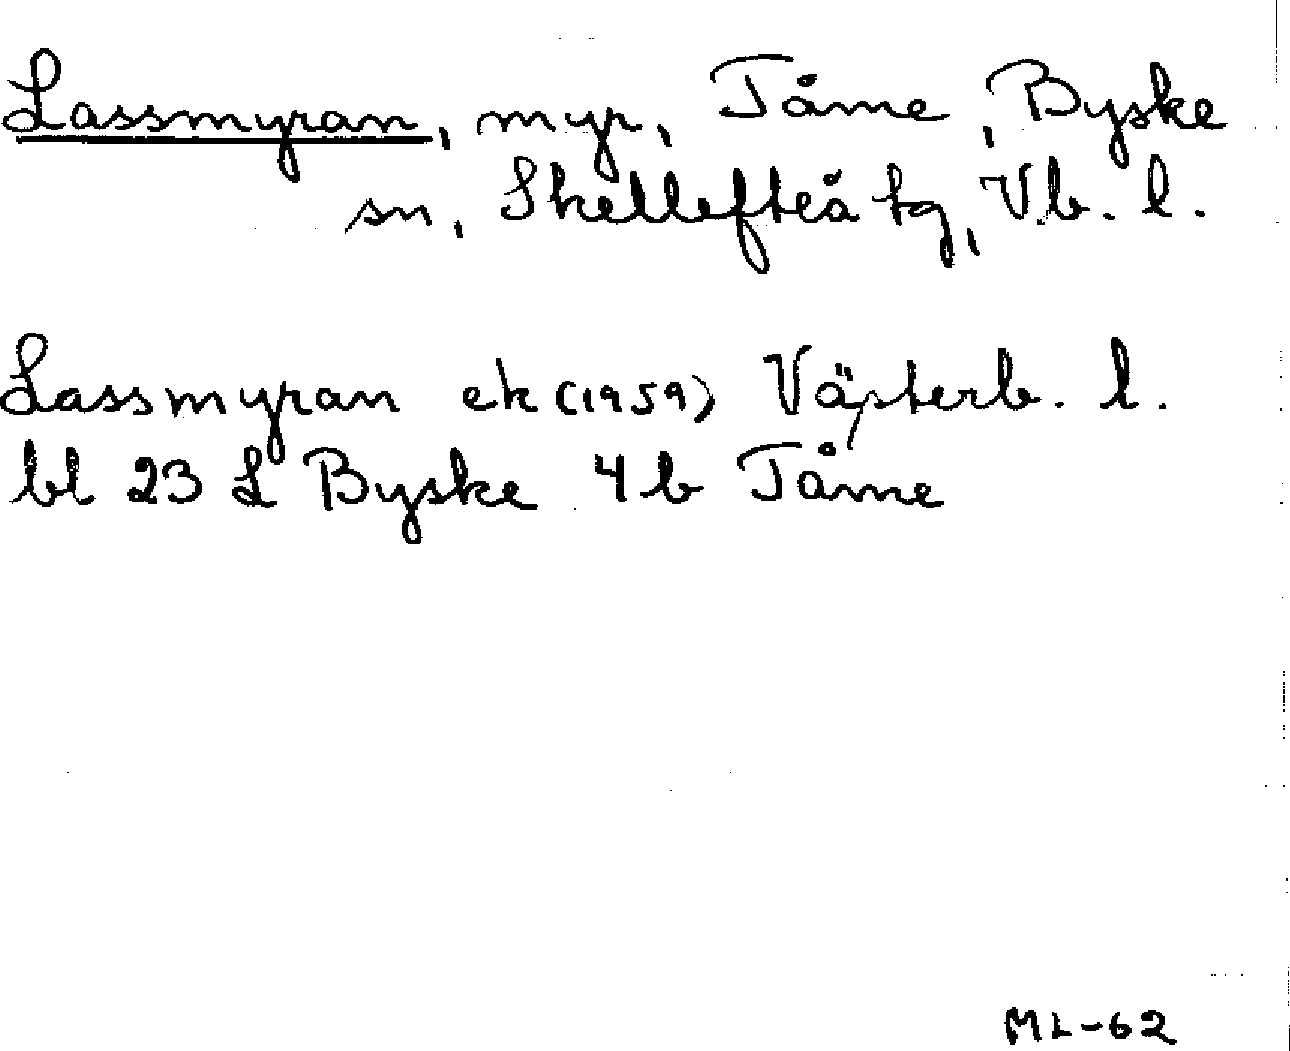 Lassmyran, myr, Tåme, Byske
sn, Skellefteå tg, Vb. l.
Lassmyran ek (1959) Västerb. l.
bl 23 L Byske 4 b Tåme
ML-62